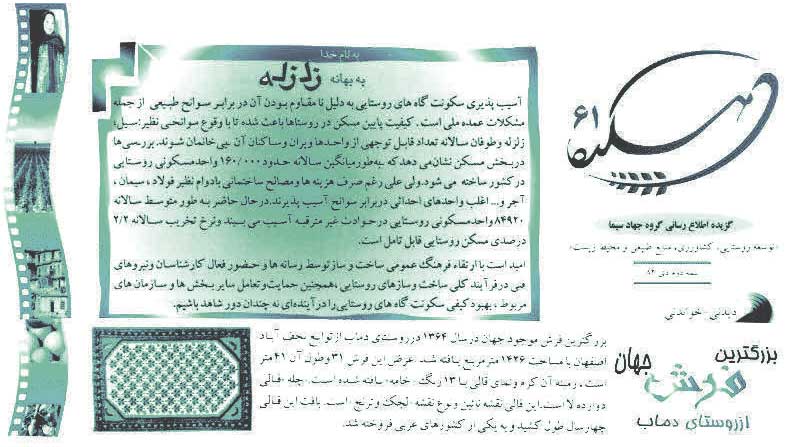 به نام خدا
به بهانه زلزله
آسیب پذیری سکونت گاه های روستایی به دلیل نا مقاوم بودن آن در برابر سوانح طبیعی از جمله
مشکلات عمده ملی است. کیفیت پایین مسکن در روستاها باعث شده تا با وقوع سوانحی نظیر: سیل،
زلزله و طوفان سالانه تعداد قابل توجهی از واحدها ویران و ساکنان آن بی خانمان شوند. بررسی ها
در بخش مسکن نشان می دهد که به طور میانگین سالانه حدود ۱۶۰/۰۰۰ واحد مسکونی روستایی
در کشور ساخته می شود. ولی علی رغم صرف هزینه ها و مصالح ساختمانی بادوام نظیر فولاد، سیمان،
آجر و... اغلب واحدهای احداثی در برابر سوانح آسیب پذیرند. در حال حاضر به طور متوسط سالانه
۸۴۹۲۰ واحد مسکونی روستایی در حوادث غیر مترقبه آسیب می بیند و نرخ تخریب سالانه ۲/۲
درصدی مسکن روستایی قابل تامل است.
امید است با ارتقاء فرهنگ عمومی ساخت و ساز توسط رسانه ها و حضور فعال کارشناسان و نیروهای
فنی در فرآیند کلی ساخت و سازهای روستایی، همچنین حمایت و تعامل سایر بخش ها و سازمان های
مربوط، بهبود کیفی سکونت گاه های روستایی را در آینده ای نه چندان دور شاهد باشیم.
۶۱
گزیده اطلاع رسانی گروه جهاد سیما
«توسعه روستایی، کشاورزی، منابع طبیعی و محیط زیست»
نیمه دوم دی ۸۲
دیدنی - خواندنی
بزرگترین
فرش جهان
از روستای دماب
بزرگترین فرش موجود جهان در سال ۱۳۶۴ در روستای دماب از توابع نجف آباد
اصفهان با مساحت ۱۴۲۶ متر مربع بافته شد. عرض این فرش ۳۱ و طول آن ۴۱ متر
است. زمینه آن کرم و نمای قالی با ۱۳ رنگ خامه بافته شده است. چله قالی
دوازده لا است. این قالی نقشه نائین و نوع نقشه لچک و ترنج است. بافت این قالی
چهار سال طول کشید و به یکی از کشورهای عربی فروخته شد.